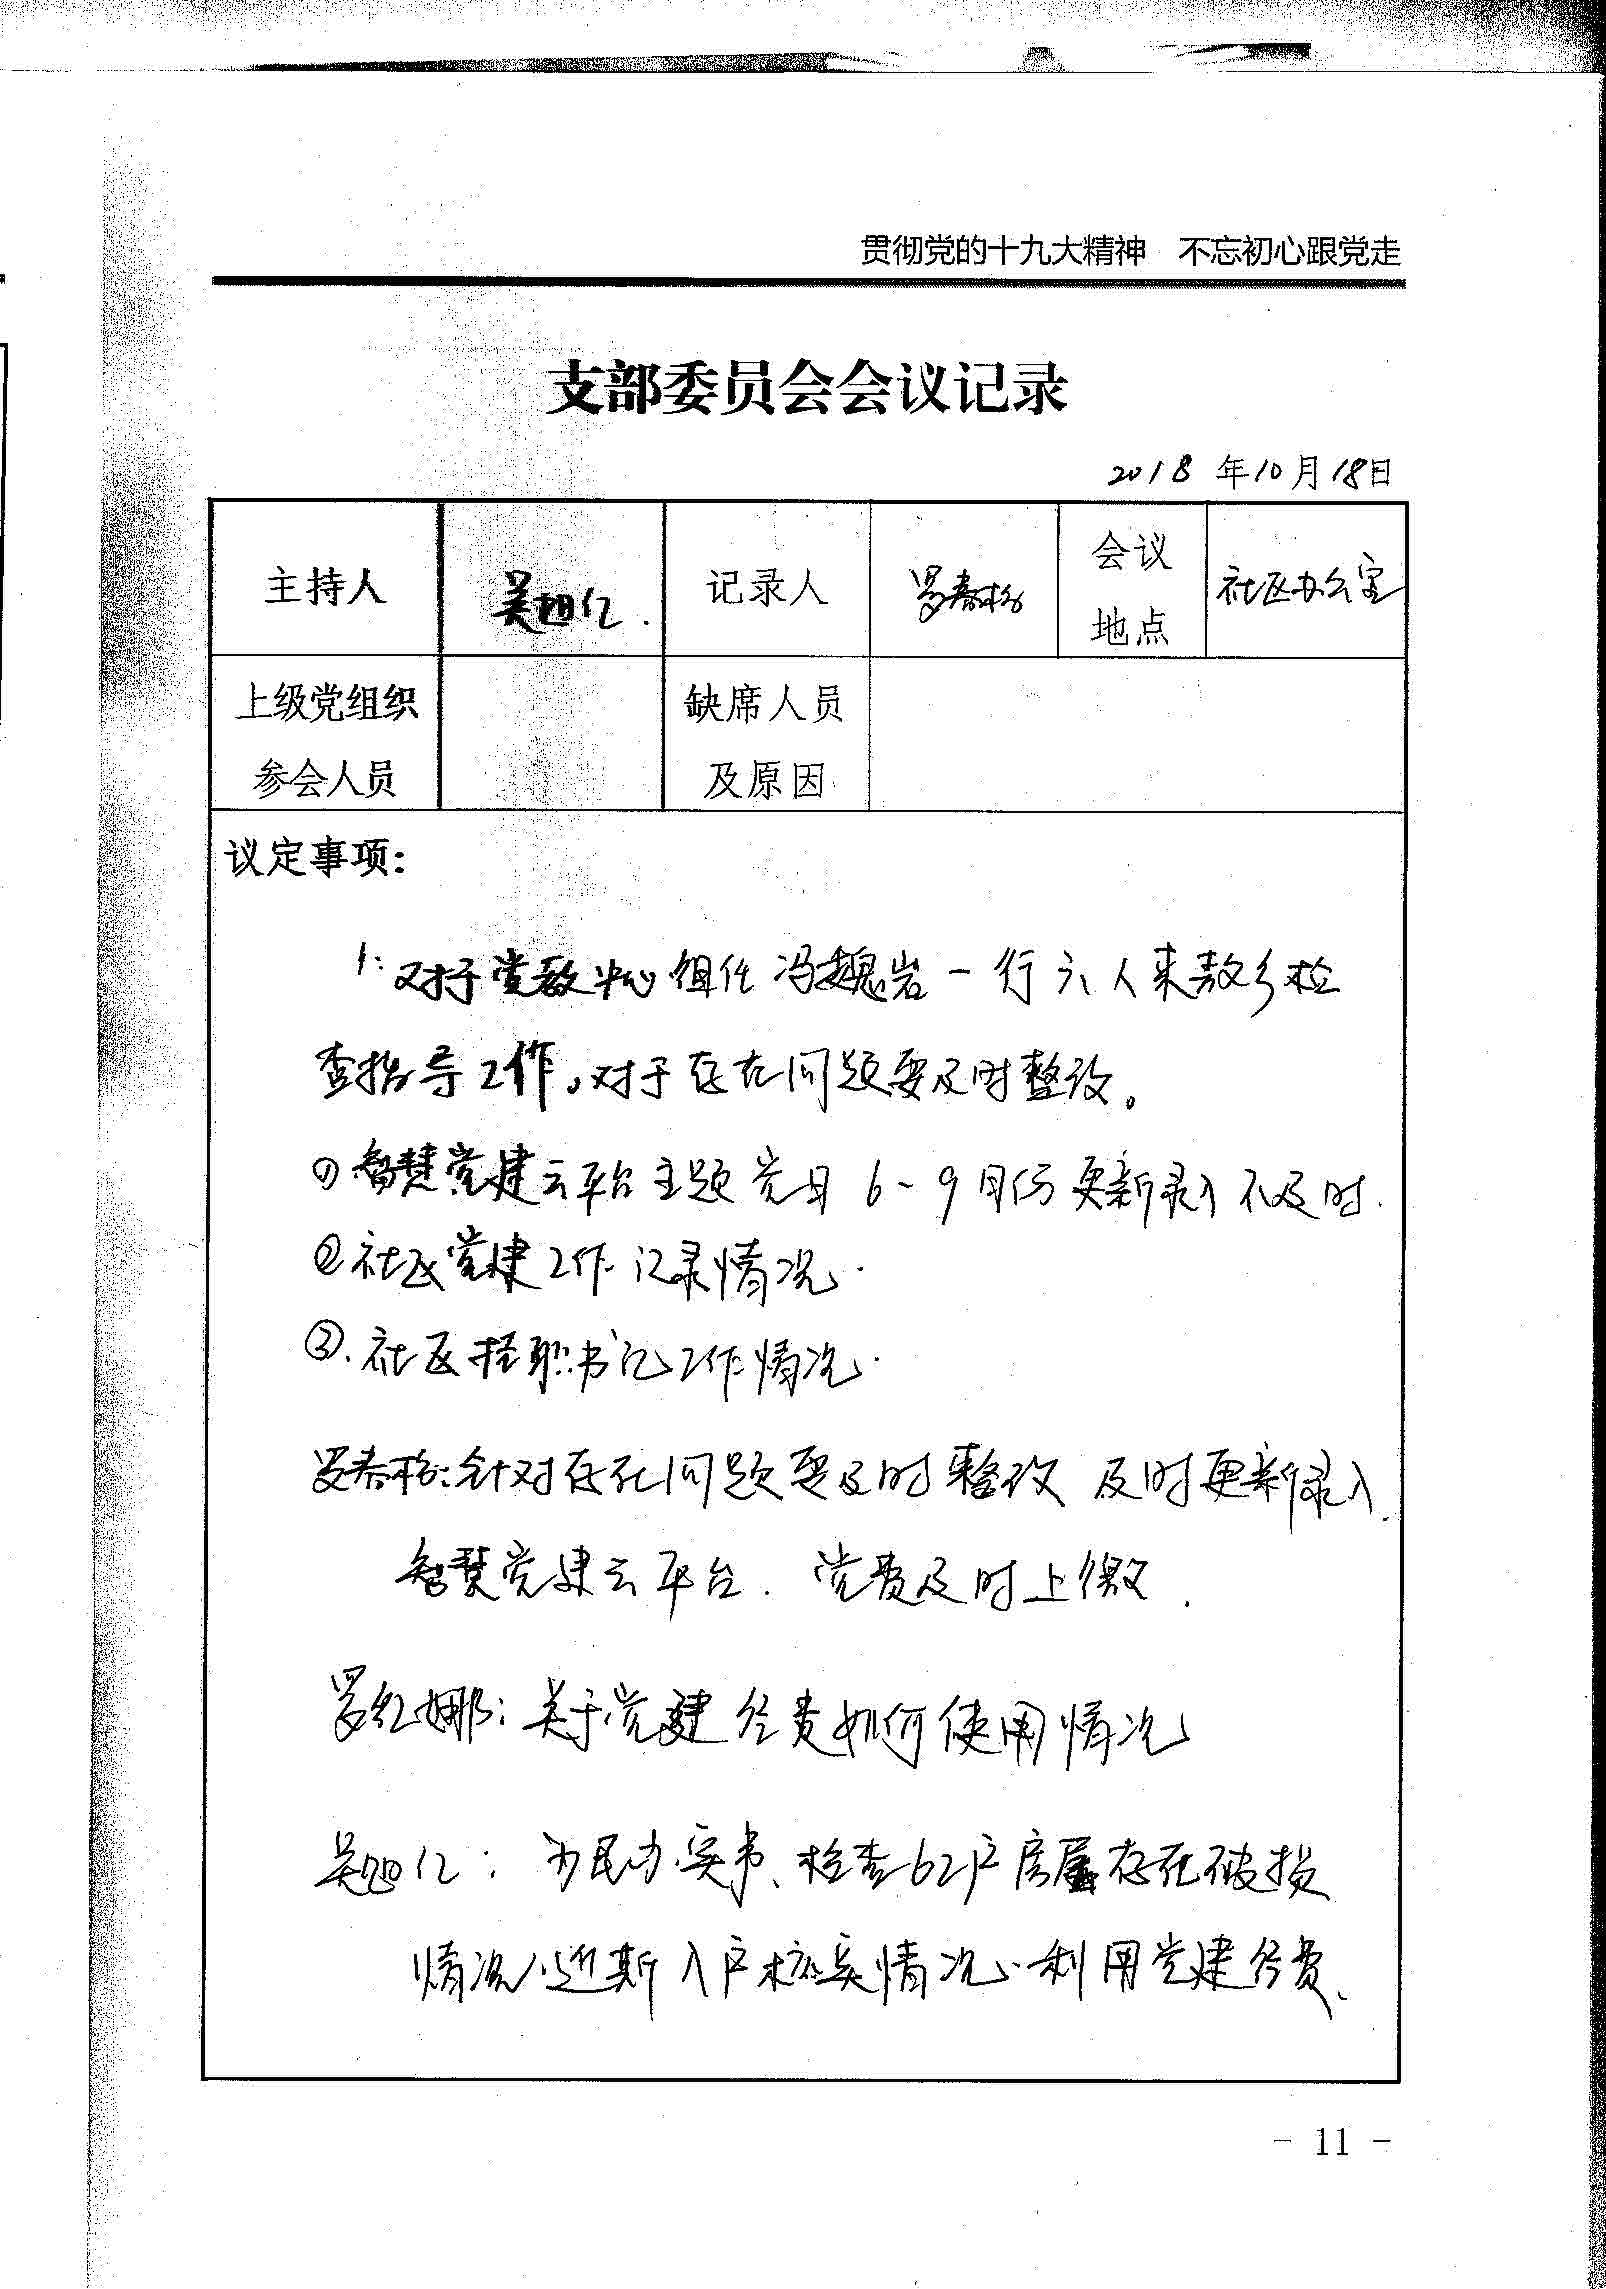 贯彻党的十九大精神 不忘初心跟党走
支部委员会会议记录
2018 年10月18日
主持人 吴旭亿. 记录人 罗春杨 会议地点 社区办公室
上级党组织参会人员 缺席人员及原因
议定事项:
1: 对于党教中心组任冯魏岩一行六人来敖乡检
查指导工作。对于存在问题要及时整改。
①智慧党建云平台主题党日6~9月份更新录入不及时.
②社区党建工作记录情况.
③.社区 职书记工作情况.
罗春杨:针对存在问题要及时整改 及时更新录入
智慧党建云平台. 党费及时上缴.
罗红娜:关于党建经费如何使用情况
吴旭亿: 为民办实事、检查62户房屋存在破损
情况,近期入户核实情况.利用党建经费、
- 11 -